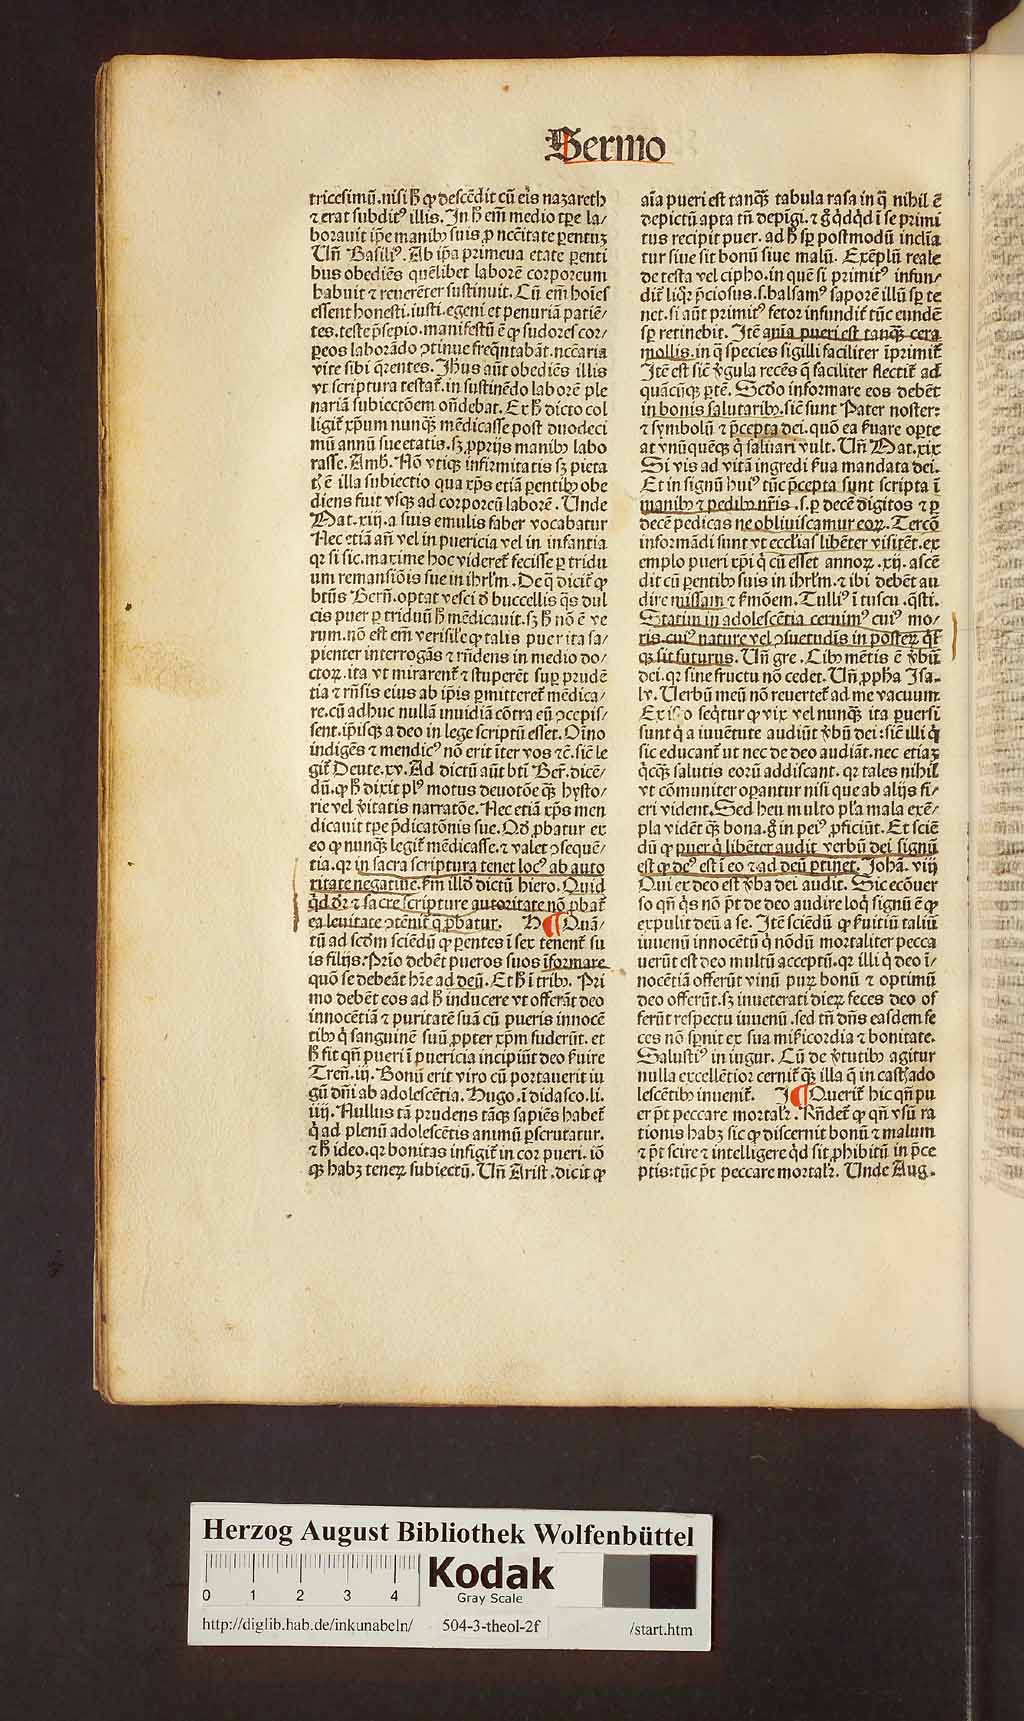 Sermo
tricesimū.nisi hͦ ꝙ descēdit cū eis nazareth
⁊ erat subditꝰ illis. In hͦ em̄ medio tꝑe la/
borauit ip̄e manibꝰ suis ꝓ nccītate ꝑentuꝫ
Un̄ Basiliꝰ. Ab ip̄a primeua etate ꝑenti
bus obediēs quēlibet laborē corporeum
habuit ⁊ reuerēter sustinuit. Cū em̄ hoīes
essent honesti.iusti.egeni et penuriā patiē/
tes.teste p̄sepio.manifestū ē ꝙ sudores cor/
ꝑeos laborādo ↄtinue freq̄ntabāt.nccāria
vite sibi q̄rentes. Jhūs aūt obediēs illis
vt scriptura testat̄.in sustinēdo laborē ple
nariā subiectōem on̄debat. Ex hͦ dicto col
ligit̄ xp̄um nunqꝫ mēdicasse post duodeci
mū annū sue etatis.sꝫ ꝓprijs manibꝰ labo
rasse. Amb̄. Nō vtiqꝫ infirmitatis sꝫ pieta
tꝭ ē illa subiectio qua xp̄s etiā ꝑentibꝰ obe
diens fuit vsqꝫ ad corporeū laborē. Unde
Mat.xiij.a suis emulis faber vocabatur
Nec etiā an̄ vel in puericia vel in infantia
qꝛ si sic.maxime hoc videret̄ fecisse ꝑ tridu
um remansiōis sue in ihrl̄m. De q̄ dicit̄ ꝙ
btūs Bern̄.optat vesci d̄ buccellis q̄s dul
cis puer ꝑ triduū hͦ mēdicauit.sꝫ hͦ nō ē ve
rum.nō est em̄ verisil̄e ꝙ talis puer ita sa/
pienter interrogās ⁊ rn̄dens in medio do/
ctoꝝ.ita vt mirarent̄ ⁊ stuperēt suꝑ prudē
tia ⁊ rn̄sis eius ab ip̄is ꝑmitteret̄ mēdica/
re.cū adhuc nullā inuidiā cōtra eū ↄcepis/
sent.ip̄isqꝫ a deo in lege scriptū esset. Oīno
indigēs ⁊ mendicꝰ nō erit īter vos ⁊c̄.sic̄ le
git̄ Deute.xv. Ad dictū aūt bti Ber̄.dicē/
dū.ꝙ hͦ dixit plꝰ motus deuotōe qꝫ hysto/
rie vel v̄itatis narratōe. Nec etiā xp̄s men
dicauit tꝑe p̄dicatōnis sue. Qd̄ ꝓbatur ex
eo ꝙ nunqꝫ legit̄ mēdicasse.⁊ valet ↄsequē/
tia.qꝛ in sacra scriptura tenet locꝰ ab auto
ritate negatiue.ẜm illd̄ dictū hiero. Quid
qd̄ dr̄ ⁊ sacre scripture autoritate nō ꝓbat̄
ea leuitate ↄtēnit̄ q̄ ꝓbatur. H ¶ Quā/
tū ad scd̄m sciēdū ꝙ ꝑentes ī sex tenent̄ su
is filijs. Prīo debēt pueros suos īformare
quō se debeāt hr̄e ad deū. Et hͦ ī tribꝰ. Pri
mo debēt eos ad hͦ inducere vt offerāt deo
innocētiā ⁊ puritatē suā cū pueris innocē
tibꝰ q̄ sanguinē suū ꝓpter xp̄m fuderūt.et
hͦ fit qn̄ pueri ī puericia incipiūt deo ẜuire
Tren̄.iij. Bonū erit viro cū portauerit iu
gū dn̄i ab adolescētia. Hugo.ī didasco.li.
iij. Nullus tā prudens tāqꝫ sapiēs habet̄
q̄ ad plenū adolescētis animū ꝑscrutatur.
⁊ hͦ ideo.qꝛ bonitas infigit̄ in cor pueri.iō
qꝫ habꝫ teneꝝ subiectū. Un̄ Arist̄.dicit ꝙ
aīa pueri est tanqꝫ tabula rasa in q̄ nihil ē
depictū apta tn̄ depīgi.⁊ ḡ qd̄qd̄ ī se primi
tus recipit puer.ad hͦ sꝑ postmodū inclīa
tur siue sit bonū siue malū. Exēplū reale
de testa vel cipho.in quē si primitꝰ infun/
dit̄ liq̄ꝛ p̄ciosus.s.balsamꝰ saporē illū sꝑ te
net.si aūt primitꝰ fetor infundit̄ tūc eundē
sꝑ retinebit. Itē aīa pueri est tanqꝫ cera
mollis.in q̄ species sigilli faciliter īprimit̄
Itē est sic̄ v̄gula recēs q̄ faciliter flectit̄ ad
quācūqꝫ ꝑtē. Scd̄o informare eos debēt
in bonis salutaribꝰ.sic̄ sunt Pater noster:
⁊ symbolū ⁊ p̄cepta dei.quō ea ẜuare oꝑte
at vnūquēqꝫ q̄ saluari vult. Un̄ Mat.xix
Si vis ad vitā ingredi ẜua mandata dei.
Et in signū huiꝰ tūc p̄cepta sunt scripta ī
manibꝰ ⁊ pedibꝰ nr̄is.s.ꝑ decē digitos ⁊ ꝑ
decē pedicas ne obliuiscamur eoꝝ. Tercō
informādi sunt vt eccl̄ias libēter visitēt.ex
emplo pueri xp̄i q̄ cū esset annoꝝ.xij.ascē
dit cū ꝑentibꝰ suis in ihrl̄m.⁊ ibi debēt au
dire missam ⁊ ẜmōem. Tulliꝰ ī tuscu.q̄sti.
Statim in adolescētia cernimꝰ cuiꝰ mo/
ris.cuiꝰ nature vel ↄsuetudīs in posteꝝ q̄s̄
qꝫ sit futurus. Un̄ gre. Cibꝰ mētis ē v̄bū
dei.qꝛ sine fructu nō cedet. Un̄ ꝓpha Isa.
lv. Uerbū meū nō reuertet̄ ad me vacuum
Ex isto seq̄tur ꝙ vix vel nunqꝫ ita ꝑuersi
sunt q̄ a iuuētute audiūt v̄bū dei:sic̄ illi q̄
sic educant̄ ut nec de deo audiāt.nec etiaꝫ
q̄cqꝫ salutis eorū addiscant.qꝛ tales nihil
vt cōmuniter opantur nisi que ab alijs fi/
eri vident. Sed heu multo pl̄a mala exē/
pla vidēt qꝫ bona.ḡ in peiꝰ ꝓficiūt. Et sciē
dū ꝙ puer q̄ libēter audit verbū dei signū
est ꝙ deꝰ est ī eo ⁊ ad deū ꝑtinet. Johā.viij
Qui ex deo est v̄ba dei audit. Sic ecōuer
so qn̄ q̄s nō p̄t de deo audire loq̄ signū ē ꝙ
expulit deū a se. Itē sciēdū ꝙ ẜuitiū taliū
iuuenū innocētū q̄ nōdū mortaliter pecca
uerūt est deo multū acceptū.qꝛ illi q̄ deo ī/
nocētiā offerūt vinū puꝝ bonū ⁊ optimū
deo offerūt.sꝫ inueterati dieꝝ feces deo of
ferūt respectu iuuenū.sed tn̄ dn̄s easdem fe
ces nō sꝑnit ex sua mīẜicordia ⁊ bonitate.
Salustiꝰ in iugur. Cū de v̄tutibꝰ agitur
nulla excellētior cernit̄ qꝫ illa q̄ in castꝭ ado
lescētibꝰ inuenit̄. J ¶ Querit̄ hic qn̄ pu
er p̄t peccare mortalr̄. Rn̄det̄ ꝙ qn̄ vsū ra
tionis habꝫ sic ꝙ discernit bonū ⁊ malum
⁊ p̄t scire ⁊ intelligere qd̄ sit ꝓhibitū in p̄ce
ptis.tūc p̄t peccare mortalr̄. Unde Aug.
Herzog August Bibliothek Wolfenbüttel
0 1 2 3 4
Kodak
Gray Scale
http://diglib.hab.de/inkunabeln/ 504-3-theol-2f /start.htm